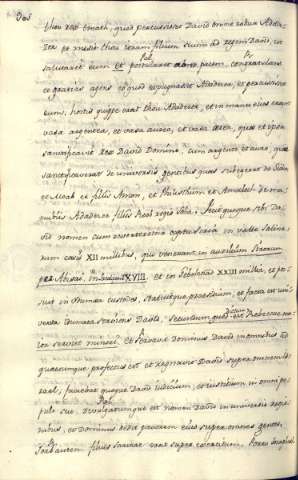 Thou rex Emath, quod percussisset David omne robur Adada
zer et misit Thou Ioram filium suum ad regem David, ut
salutaret eum et postularet pacem, congratulans
et gratias agens eo quod expugnasset Adadezer, et percussisset
eum, hostis quippe erat Thou Adadezer, et in manu eius erant
vasa argentea, et vasa aurea, et vasa aerea, quae et ipsa
sanctificavit rex David Domino, cum argento et auro, quae
sanctificaverat de universis gentibus quas subegerat de Siria
et Moab et filiis Amon, et Philisthim et Amalech de ma
nubiis Adadezer filii Roob regis Soba, fecit quoque sibi Da
vid nomen cum reverteretur capta Siria in valle Salina
rum caesis XII milibus, qui venerant in auxilium
Abisai XVIII et in Gebelem XXIII milia, et po
suit in Idumea custodes, statuitque praesidium, et facta est uni
versa Idumea serviens David,
et servavit Dominus David in omnibus ad
quaecunque profectus est et regnavit David super omnem Is
rael, faciebat quoque David iudicium, et iustitiam in omni po
pulo suo, divulgatumque est nomen David in universis regio
nibus, et Dominus dedit pavorem eius super omnes gentes,
Ioab autem filius Sarviae erat super exercitum, Porro Iosaphat